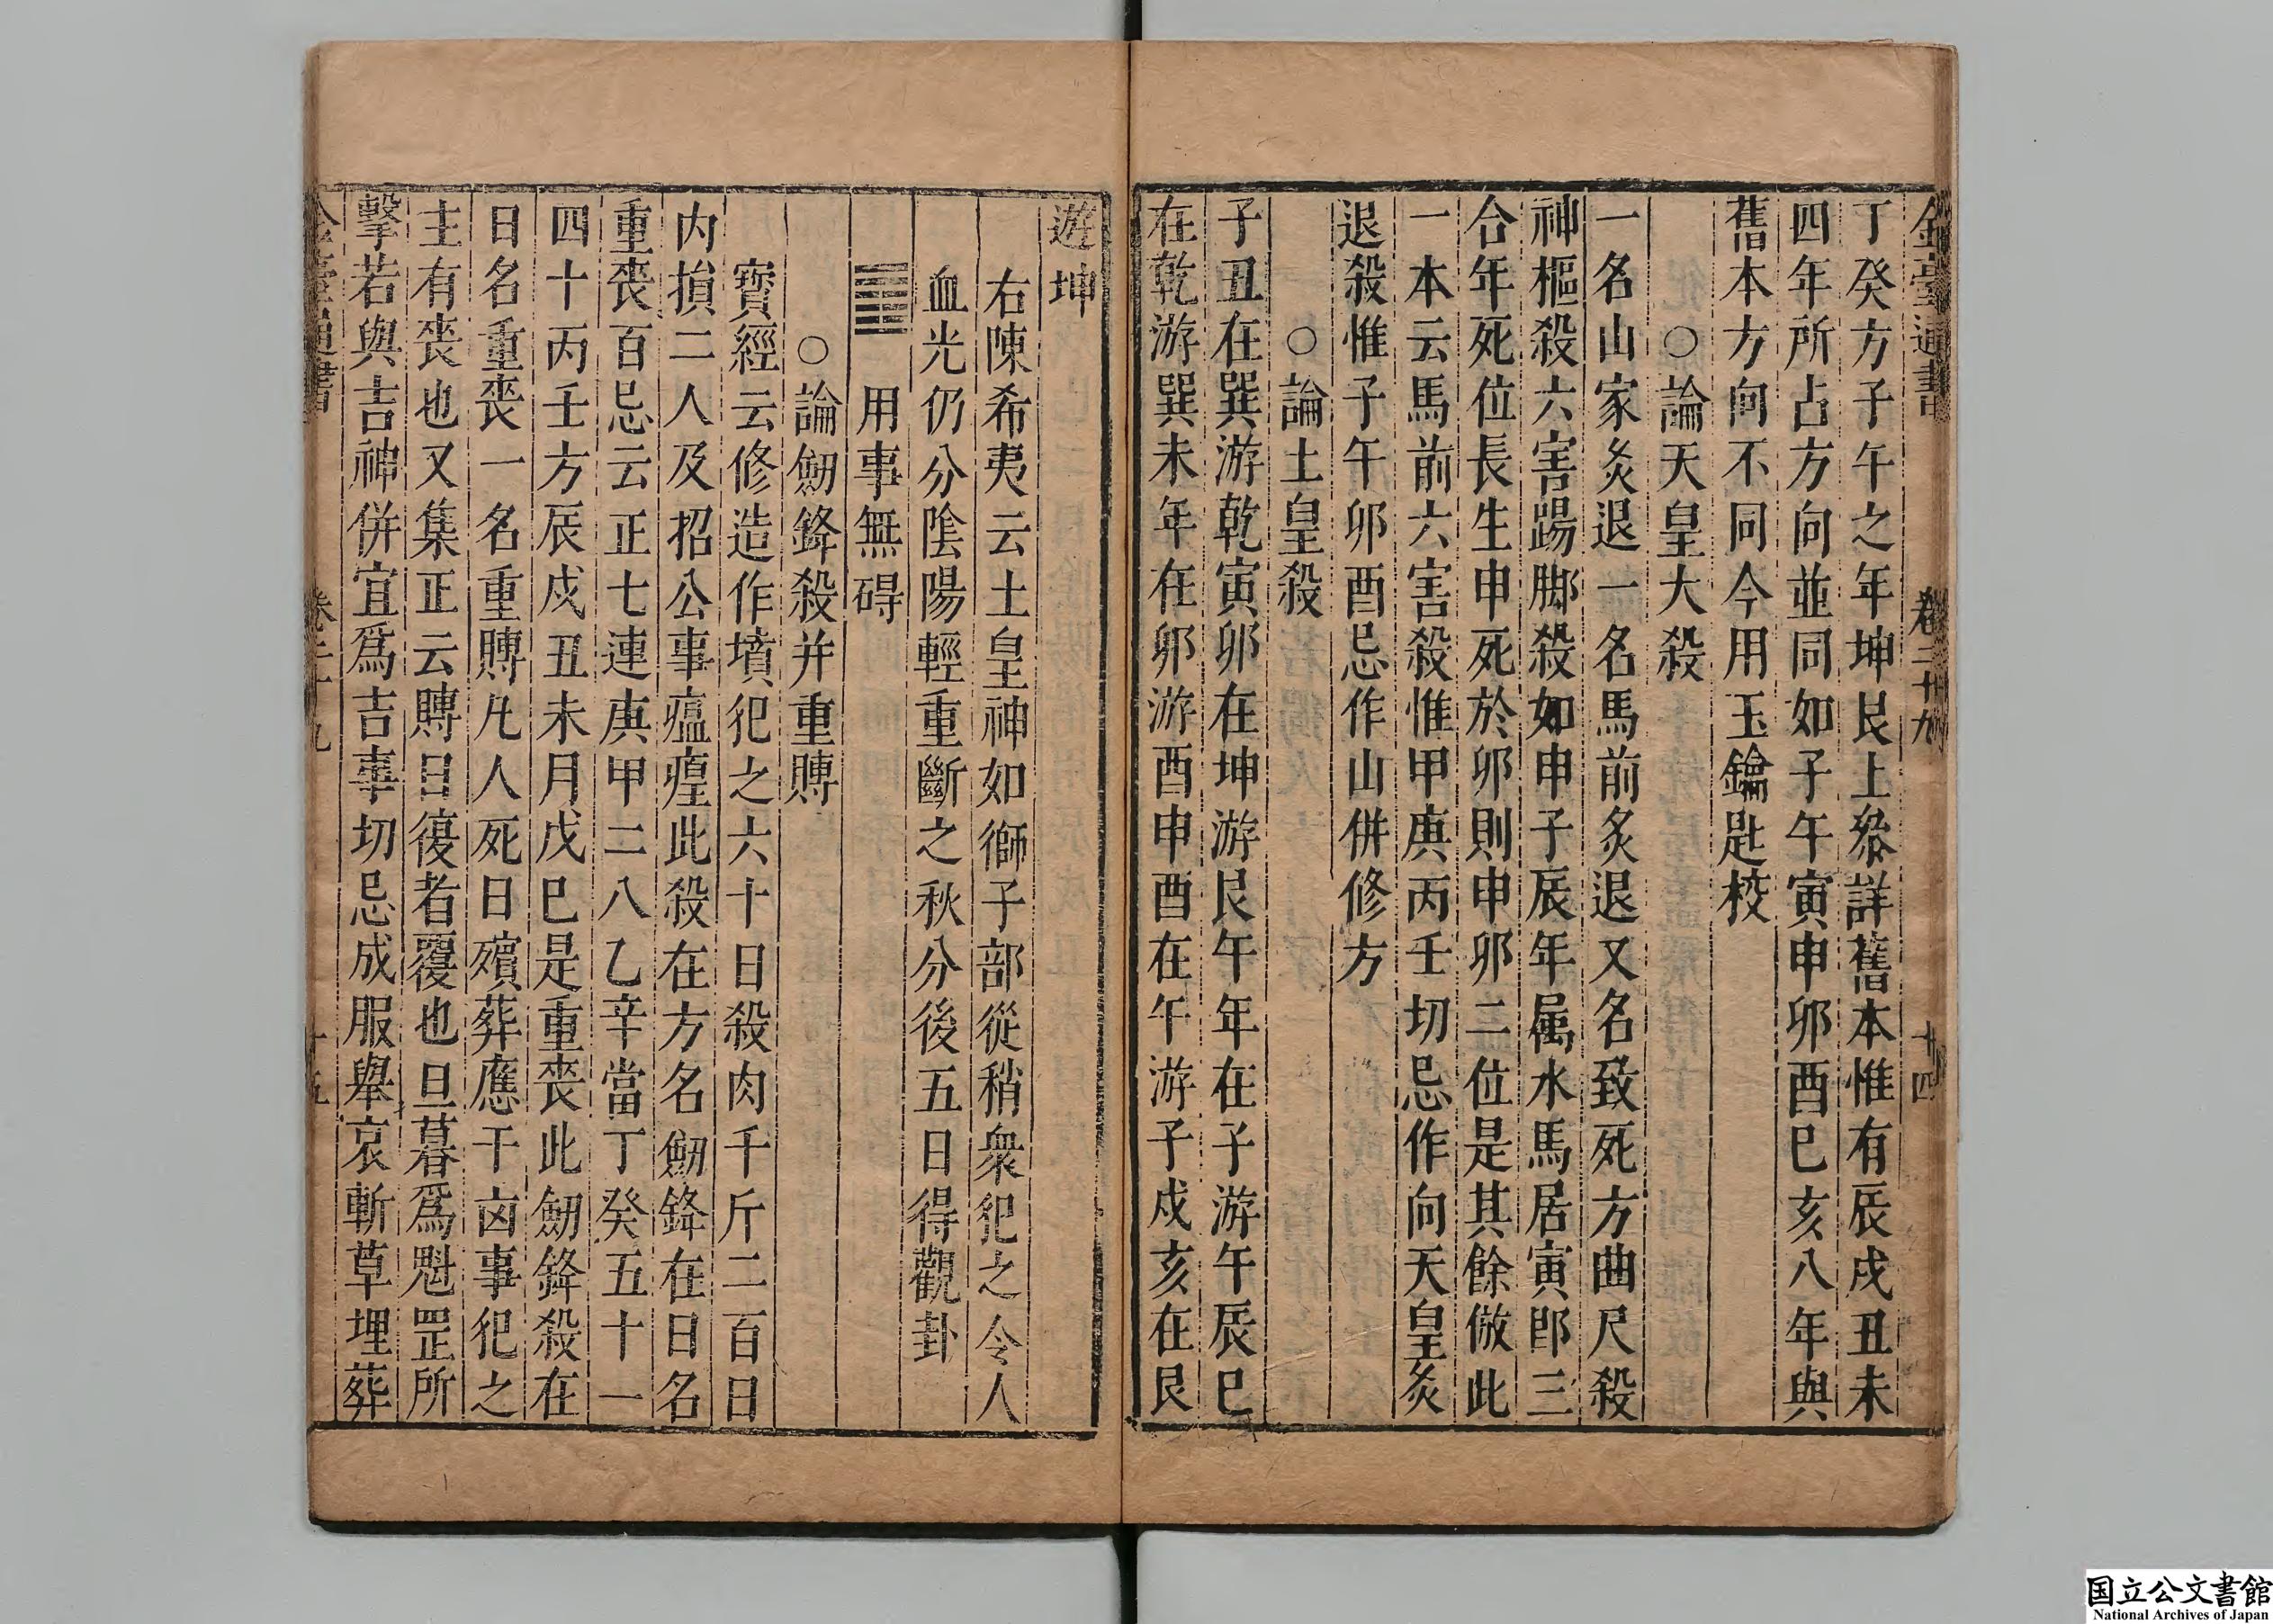 金臺通書 卷二十九 十四
丁癸方子午之年坤艮上叅詳舊本惟有辰戌丑未
四年所占方向並同如子午寅申卯酉巳亥八年與
舊本方向不同今用玉鑰匙校
○論天皇大殺
一名山家炙退一名馬前炙退又名致死方曲尺殺
神樞殺六害踢脚殺如申子辰年属水馬居寅郎三
合年死位長生申死於卯則申卯二位是其餘倣此
一本云馬前六害殺惟甲庚丙壬切忌作向天皇炙
退殺惟子午卯酉忌作山併修方
○論土皇殺
子丑在巽游乾寅卯在坤游艮午年在子游午辰巳
在乾游巽未年在卯游酉申酉在午游子戌亥在艮
遊坤
右陳希夷云土皇神如獅子部從稍衆犯之令人
血光仍分陰陽輕重斷之秋分後五日得觀卦
䷓ 用事無碍
○論劒鋒殺并重賻
寳經云修造作墳犯之六十日殺肉千斤二百日
内損二人及招公事瘟㾮此殺在方名劒鋒在日名
重喪百忌云正七連庚甲二八乙辛當丁癸五十一
四十丙壬方辰戌丑未月戊巳是重喪此劒鋒殺在
日名重喪一名重賻凡人死日殯葬應干凶事犯之
主有喪也又集正云賻日復者覆也旦暮爲魁罡所
擊若與吉神併宜爲吉事切忌成服舉哀斬草埋葬
金臺通書 卷二十九 十五
国立公文書館
National Archives of Japan